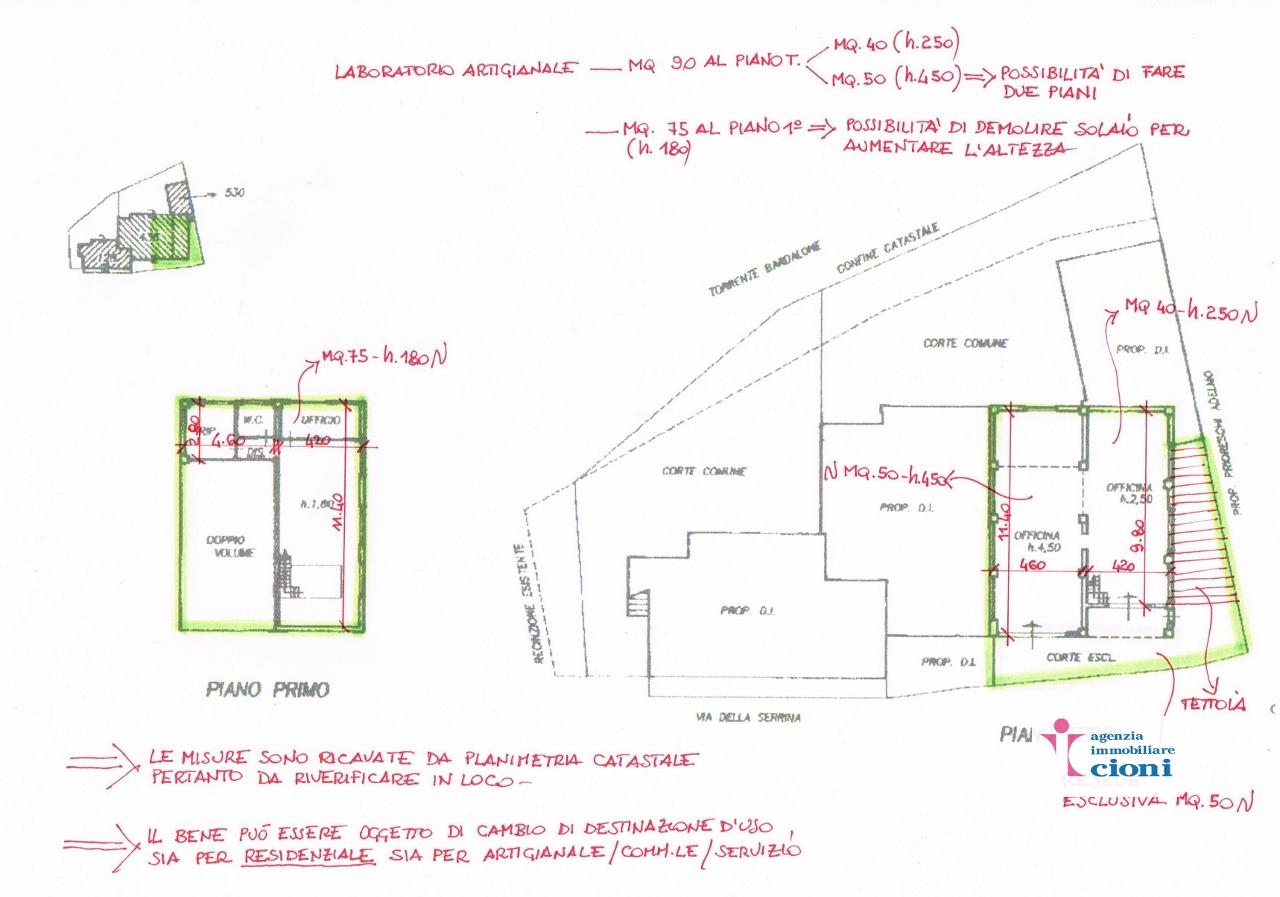 LABORATORIO ARTIGIANALE — MQ 90 AL PIANO T.
MQ. 40 (h.250)
MQ. 50 (h.450) ⇒ POSSIBILITA' DI FARE
DUE PIANI
— MQ. 75 AL PIANO 1º ⇒ POSSIBILITA' DI DEMOLIRE SOLAIO PER
(h. 180) AUMENTARE L'ALTEZZA
530
TORRENTE BARDALONE
CONFINE CATASTALE
MQ 40-h.250 N
CORTE COMUNE
PROP. D.I.
PROP. PRIORESCHI ADELMO
MQ.75-h.180 N
W.C.
UFFICIO
2.80
RIP.
4.60
420
DIS.
h.1,80
11.40
DOPPIO
VOLUME
PIANO PRIMO
CORTE COMUNE
N MQ.50-h.450
PROP. D.I.
OFFICINA
h.2,50
11.40
OFFICINA
h.4,50
9.80
460
420
RECINZIONE ESISTENTE
PROP. D.I.
PROP. D.I.
CORTE ESCL.
VIA DELLA SERRINA
TETTOIA
PIA
agenzia
immobiliare
cioni
ESCLUSIVA MQ.50 N
⇒ LE MISURE SONO RICAVATE DA PLANIMETRIA CATASTALE
PERTANTO DA RIVERIFICARE IN LOCO -
⇒ IL BENE PUÓ ESSERE OGGETTO DI CAMBIO DI DESTINAZIONE D'USO,
SIA PER RESIDENZIALE SIA PER ARTIGIANALE/COMM.LE/SERVIZIO